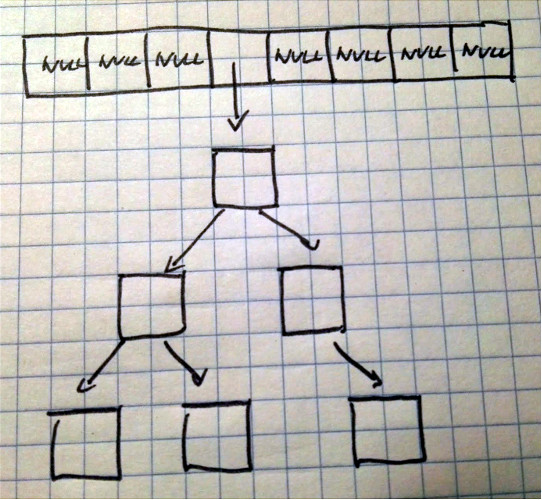 NULL NULL NULL NULL NULL NULL NULL